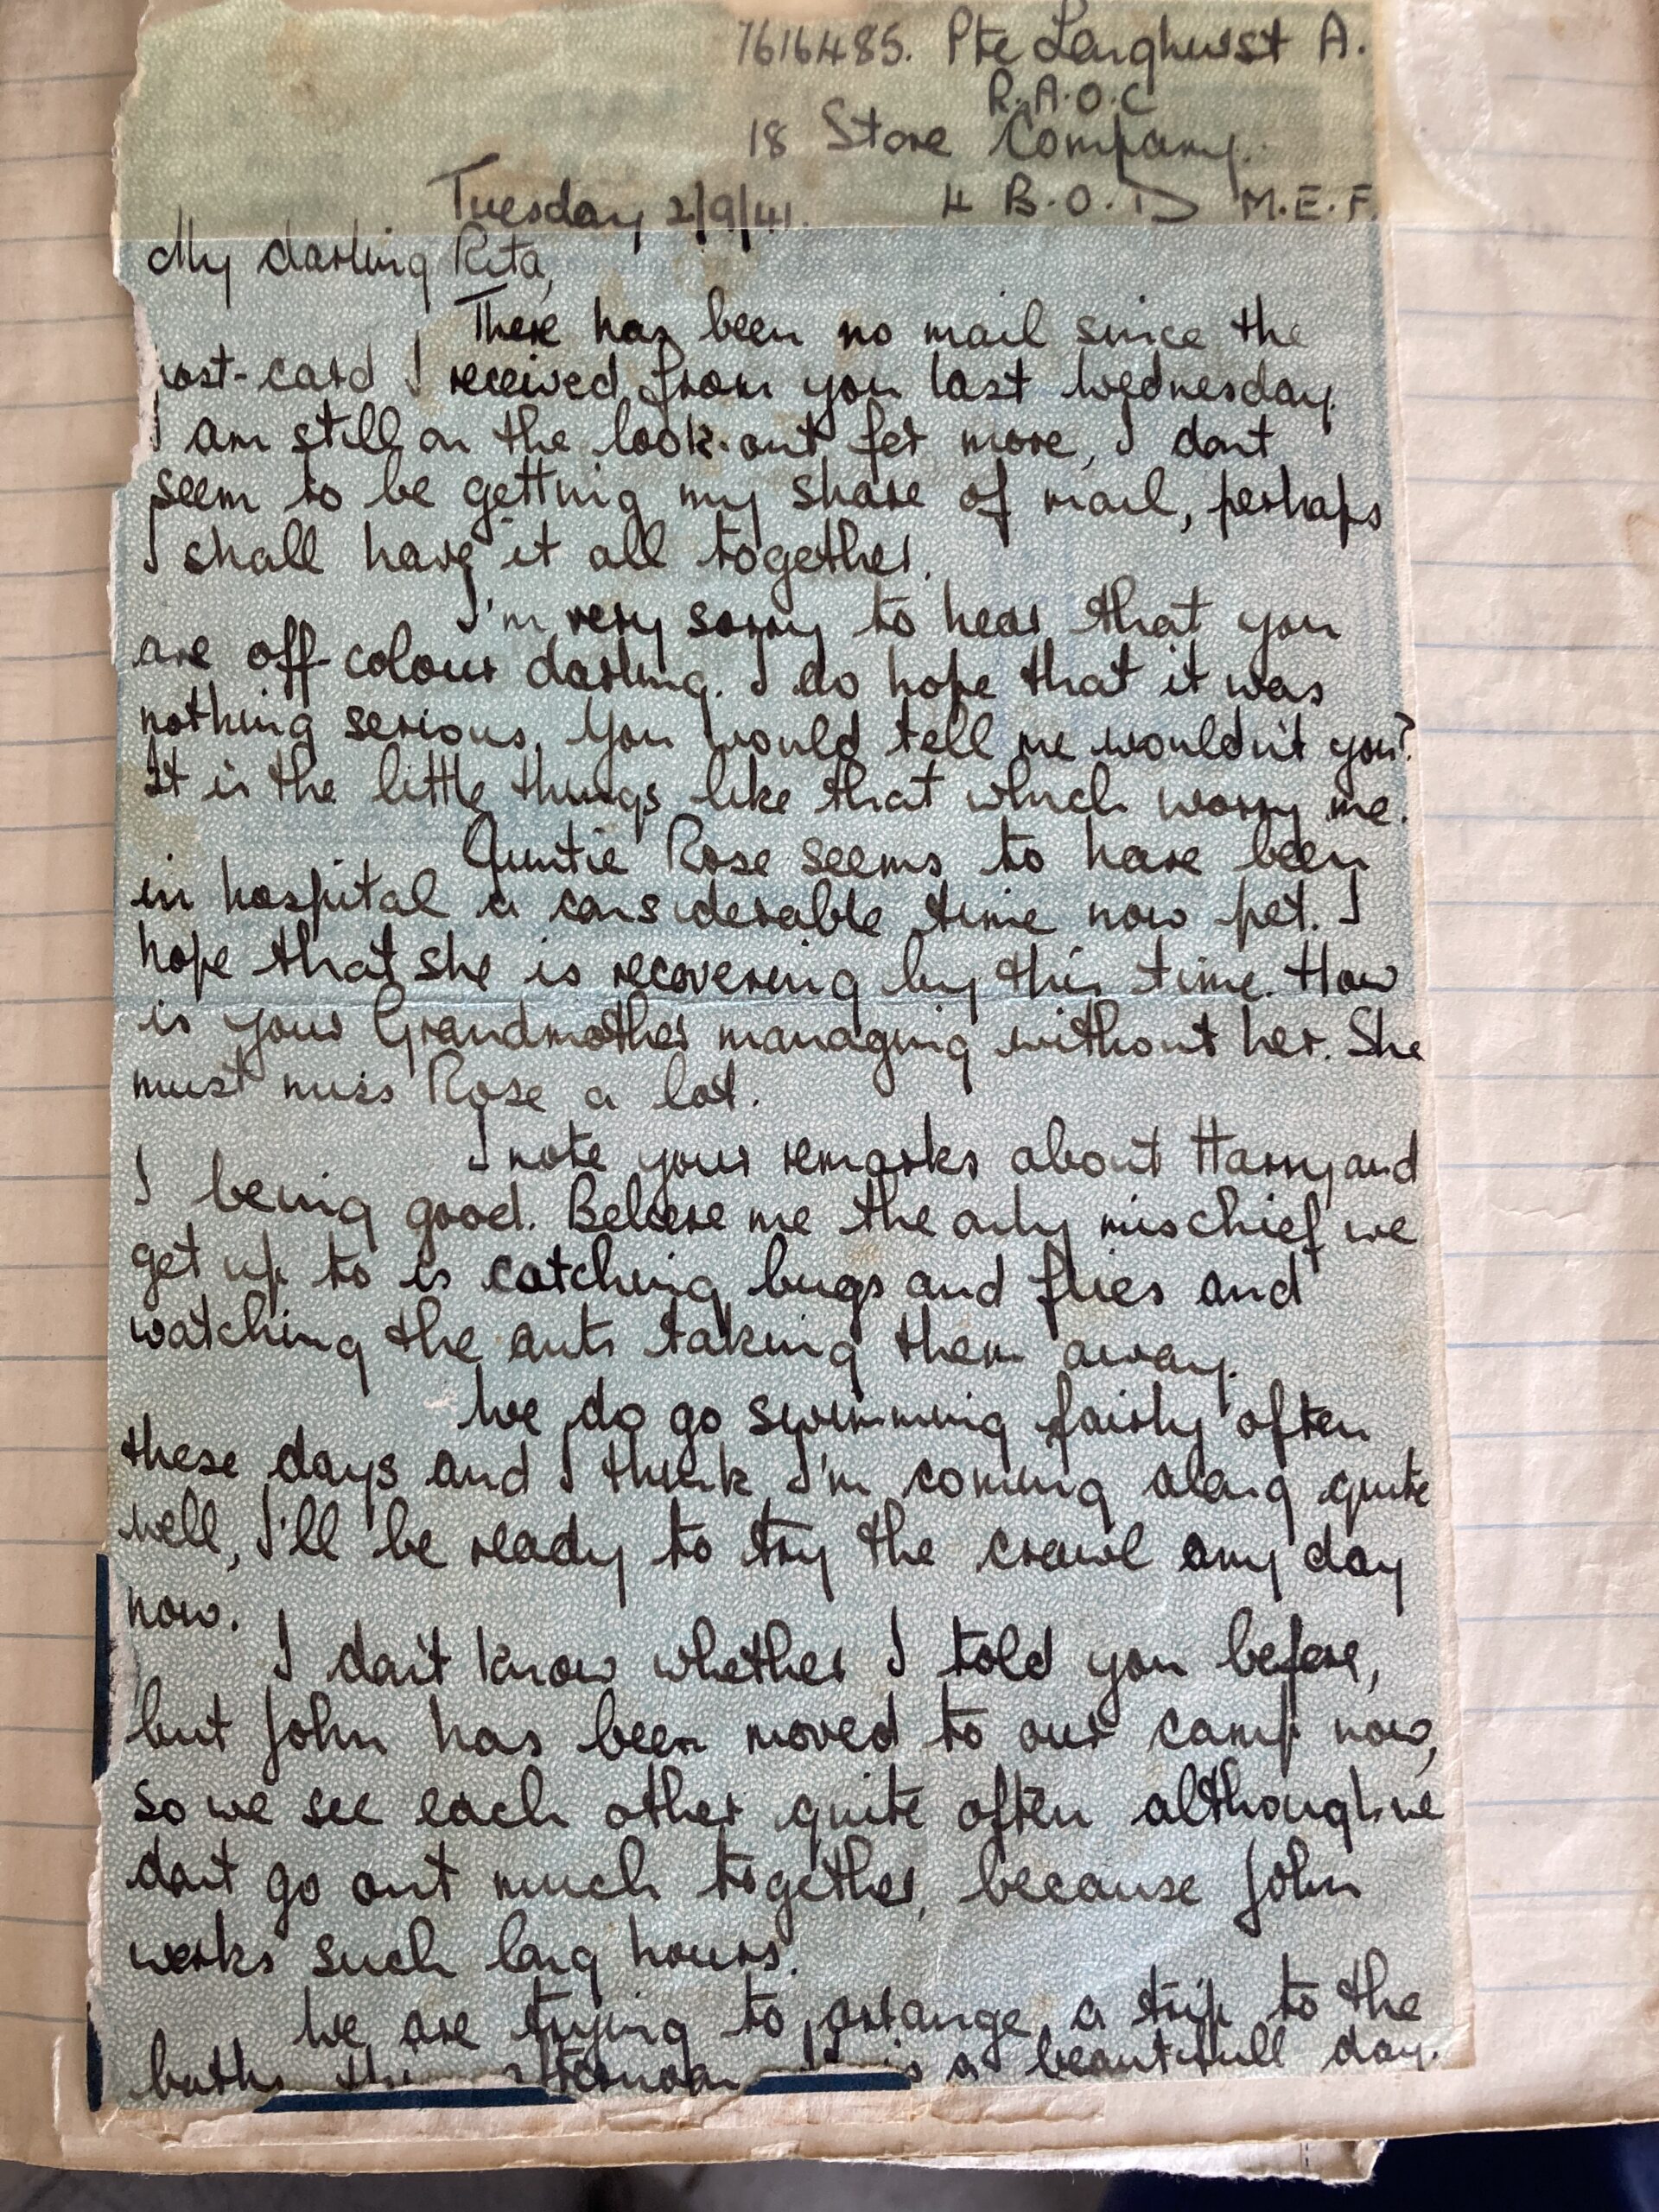 7616485. Pte Longhurst A.
R.A.O.C
18 Store Company.
Tuesday 2/9/41. 4 B.O.D M.E.F.
My darling Rita,
There has been no mail since the
post-card I received from you last Wednesday.
I am still on the look-out for more, I dont
seem to be getting my share of mail, perhaps
I shall have it all together.
I'm very sorry to hear that you
are off-colour darling. I do hope that it was
nothing serious. You would tell me wouldn't you?
It is the little things like that which worry me.
Auntie Rose seems to have been
in hospital a considerable time now pet. I
hope that she is recovering by this time. How
is your Grandmother managing without her. She
must miss Rose a lot.
I note your remarks about Harry and
I being good. Believe me the only mischief we
get up to is catching bugs and flies and
watching the ants taking them away.
We do go swimming fairly often
these days and I think I'm coming along quite
well, I'll be ready to try the crawl any day
now.
I don't know whether I told you before,
but John has been moved to our camp now,
so we see each other quite often although we
dont go out much together, because John
works such long hours.
We are trying to arrange a trip to the
baths this afternoon. It is a beautifull day.